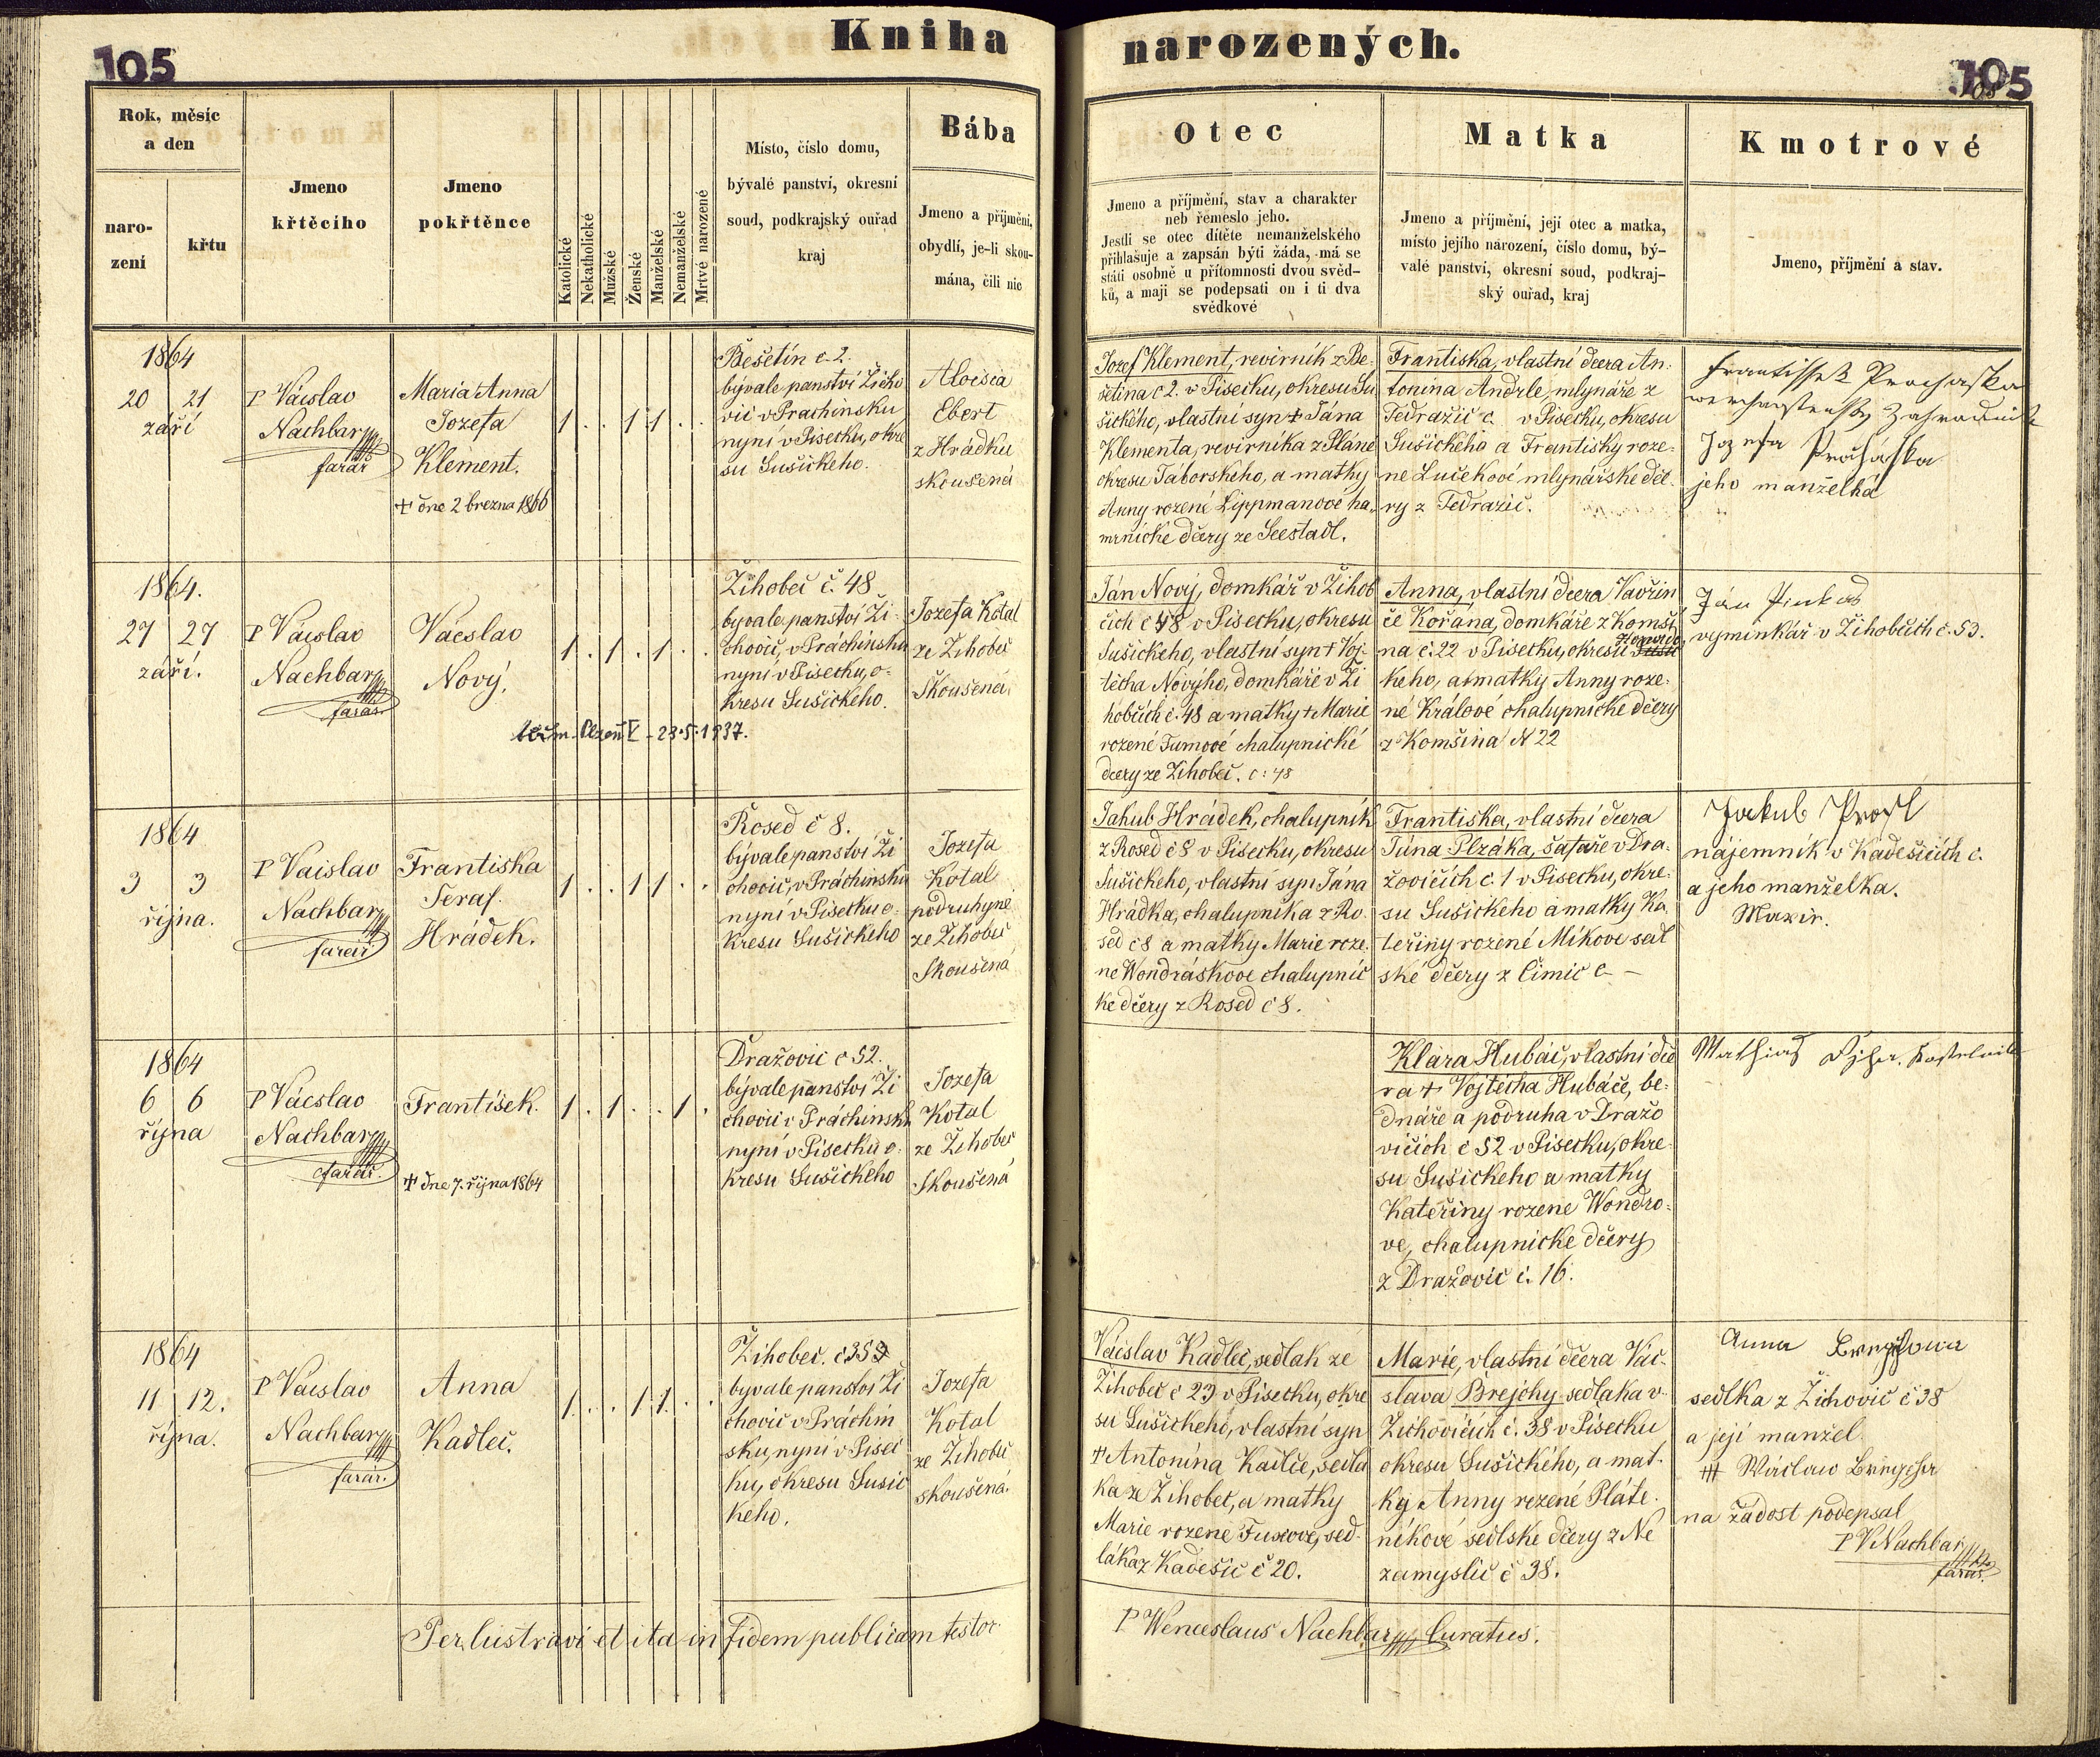 105
Kniha narozených.
105
Rok, měsíc
a den
naro-
zení
křtu
Jmeno
křtěcího
Jmeno
pokřtěnce
Katolické
Nekatholické
Mužské
Ženské
Manželské
Nemanželské
Mrtvé narozené
Místo, číslo domu,
bývalé panství, okresní
soud, podkrajský ouřad
kraj
Bába
Jmeno a příjmění,
obydlí, je-li skou-
mána, čili nic
Otec
Jmeno a příjmění, stav a charakter
neb řemeslo jeho.
Jestli se otec dítěte nemanželského
přihlašuje a zapsán býti žáda, má se
státi osobně u přítomnosti dvou svěd-
ků, a maji se podepsati on i ti dva
svědkové
Matka
Jmeno a příjmění, její otec a matka,
místo jejího národzení, číslo domu, bý-
valé panství, okresní soud, podkraj-
ský ouřad, kraj
Kmotrové
Jmeno, příjmění a stav.
1864
20 21
září
P Václav
Nachbar
farář
Maria Anna
Jozefa
Klement.
+ dne 2 března 1866
1 . . 1 1 . .
Bešetín č. 2.
bývale panství Žicho
vic v Prachinsku
nyní v Pisecku, okre
su Sušickeho.
Aloisia
Ebert
z Hrádku
skoušená
Jozef Klement, revirník z Be-
šetina č 2. v Pisecku, okresu Su
šického, vlastní syn + Jána
Klementa, revirníka z Pláně
okresu Táborskeho, a matky
Anny rozené Lippmanové ha-
mrnické dčery ze Seestadl.
Frantiska, vlastní dcera An-
tonína Andrle, mlynáře z
Tedražic č. v Pisecku, okresu
Sušického a Frantisky roze-
né Lučekové mlynářske dče-
ry z Tedražic.
Frantissek Prochaska
Zahradnik
Jozefa Procháska
jeho manželka
1864.
27 27
září.
P Václav
Nachbar
farář
Václav
Nový.
Plzeň V - 23.5.1937.
1 . 1 . 1 . .
Žihobec č. 48
byvale panství Ži-
chovic, v Práchinsku
nyní v Pisecku, o-
kresu Sušickeho.
Jozefa Kotal
ze Žihobec
Skoušená
Ján Nový, domkář v Žihob
čich č 48 v Pisecku, okresu
Sušickeho, vlastní syn + Voj-
těcha Nového, domkáře v Ži
hobčich č. 48 a matky + Marie
rozené Tumové chalupnické
dcery ze Žihobec. č: 48
Anna, vlastní dcera Vavřin
če Kořána, domkáře z Komši
na č. 22 v Pisecku, okresu
keho, a matky Anny roze-
né Králové chalupnické dčery
z Komšina N 22
Ján Pinkas
vyminkář v Žihobčích č. 53.
1864
3 3
října.
P Václav
Nachbar
farář
Frantiska
Seraf.
Hrádek.
1 . . 1 1 . .
Rosed č 8.
bývale panství Ži
chovic, v Práchinsku
nyní v Pisecku o-
kresu Sušickeho
Jozefa
Kotal
podruhyne
ze Žihobec
Skoušena
Jakub Hrádek, chalupník
z Rosed č 8 v Pisecku, okresu
Sušickeho, vlastní syn Jána
Hrádka, chalupníka z Ro-
sed č 8 a matky Marie roze-
né Wondráskove chalupnic
ke dčery z Rosed č 8.
Frantiska, vlastní dcera
Jána Plzáka, šafáře v Dra-
žovičich č. 1 v Pisecku, okre-
su Sušickeho a matky Ka-
teřiny rozené Míkove sed
ské dčery z Čimic č —
Jakub
nájemník v Kadešicích č.
a jeho manželka.
1864
6 6
října
P Václav
Nachbar
farář.
Frantisek.
+ dne 7. října 1864
1 . 1 . . 1 .
Dražovic č 52.
bývale panství Ži
chovic v Práchinsku
nyní v Pisecku o-
kresu Sušického
Jozefa
Kotal
ze Žihobec
Skoušená
Klára Hubáč, vlastní dce
ra + Vojtěcha Hubáče, be-
dnáře a podruha v Dražo
vičich č 52 v Pisecku, okre-
su Sušického a matky
Kateřiny rozene Wondro-
ve, chalupnické dčery
z Dražovic č. 16.
Mathias kostelnik
1864
11 12.
října.
P Václav
Nachbar
farář.
Anna
Kadlec.
1 . . 1 1 . .
Žihobec.
byvale panství Ži
chovic v Práchin
sku, nyní v Písec
ku, okresu Sušic
keho.
Jozefa
Kotal
ze Žihobec
skoušená.
Václav Kadlec, sedlak ze
Žihobec č 23 v Pisecku, okre
su Sušickeho, vlastní syn
+ Antonína Kadlce, sedla
ka ze Žihobec, a matky
Marie rozene Fuxove, sed-
láka z Kadešic č 20.
Marie, vlastní dčera Vác-
slava Brejchy sedlaka v
Žichovičich č. 38 v Pisecku
okresu Sušického, a mat-
ky Anny rozené Pláte-
níkové sedlske dčery z Ne
zamyslic č 38.
Anna
sedlka z Žichovic č 38
a její manžel
+++
na žádost podepsal
P V Nachbar
farář.
Perlustravi et ita in fidem publicam testor.
P Wenceslaus Nachbar Curatus.